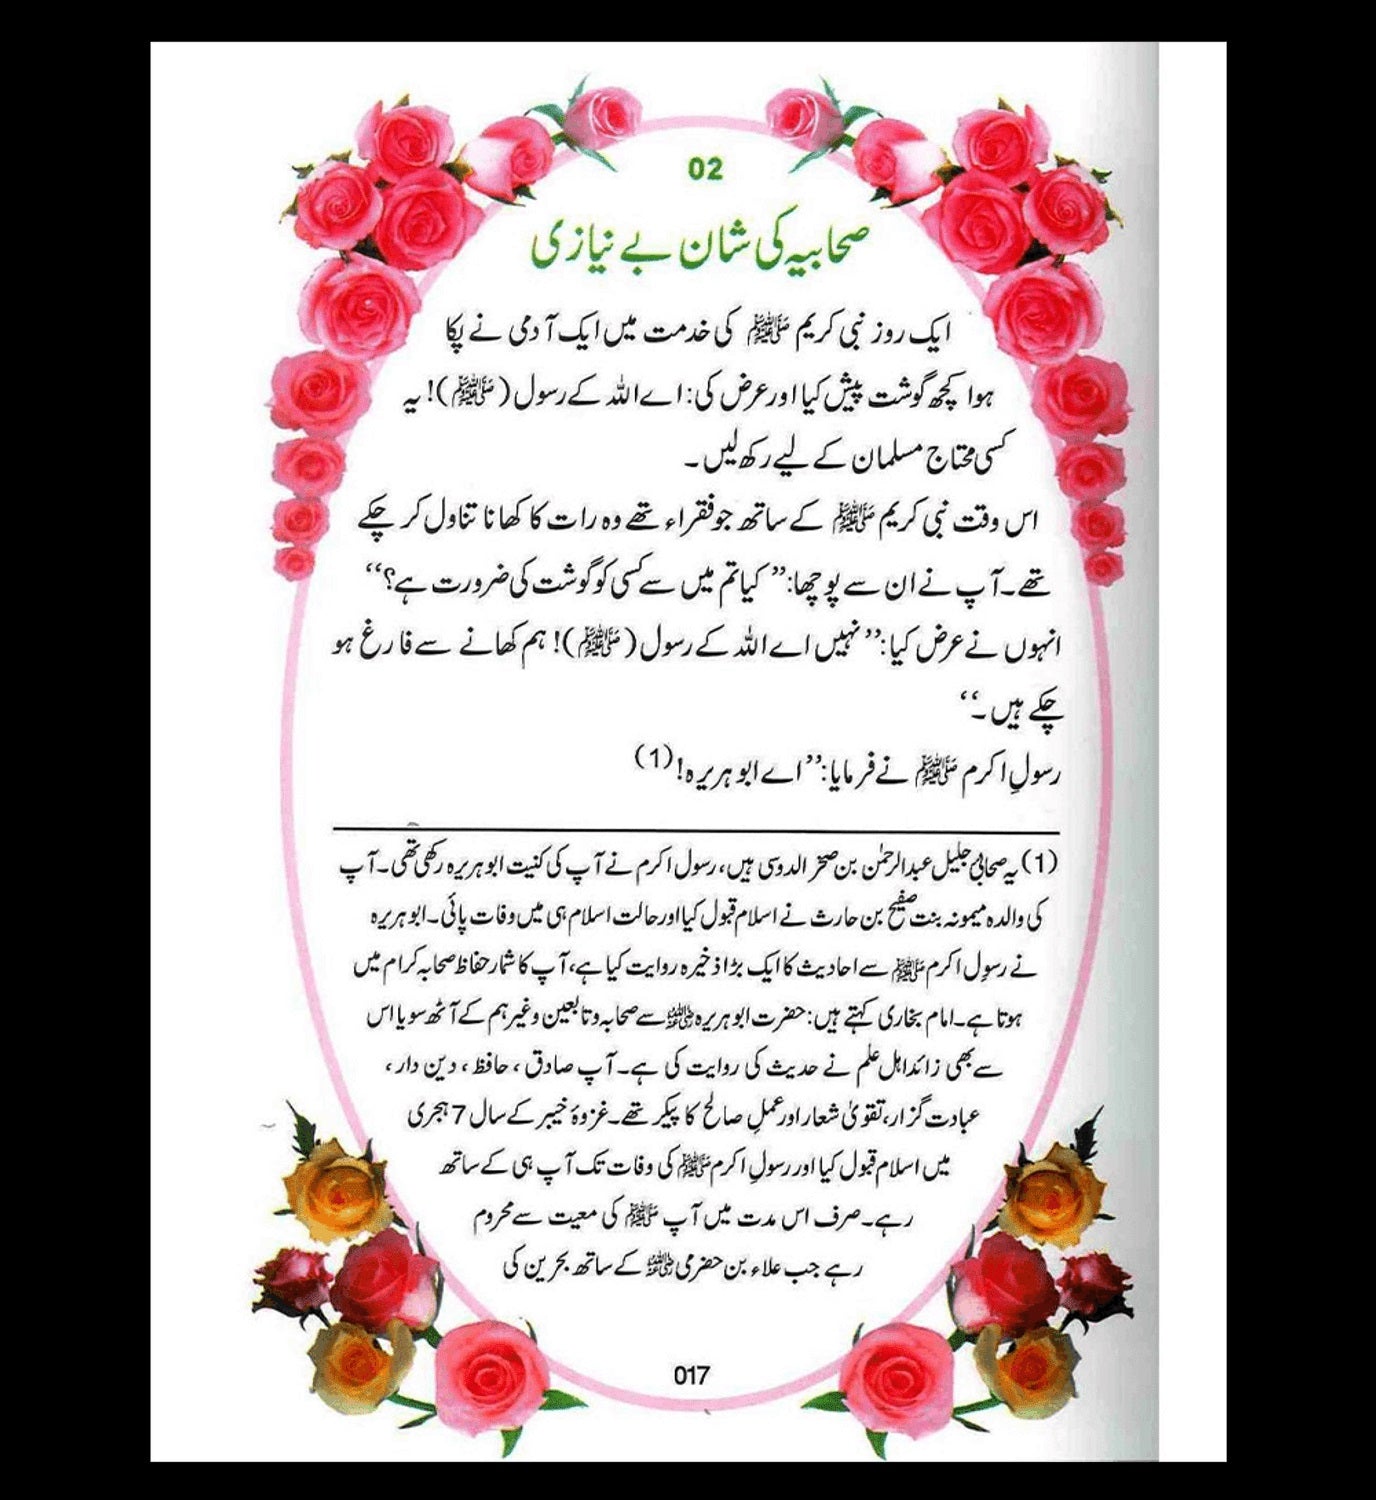 02
صحابیہ کی شان بے نیازی
ایک روز نبی کریم ﷺ کی خدمت میں ایک آدمی نے پکا
ہوا کچھ گوشت پیش کیا اور عرض کی: اے اللہ کے رسول (ﷺ)! یہ
کسی محتاج مسلمان کے لیے رکھ لیں۔
اس وقت نبی کریم ﷺ کے ساتھ جو فقراء تھے وہ رات کا کھانا تناول کر چکے
تھے۔ آپ نے ان سے پوچھا: ”کیا تم میں سے کسی کو گوشت کی ضرورت ہے؟“
انہوں نے عرض کیا: ”نہیں اے اللہ کے رسول (ﷺ)! ہم کھانے سے فارغ ہو
چکے ہیں۔“
رسولِ اکرم ﷺ نے فرمایا: ”اے ابو ہریرہ! (1)
(1) یہ صحابیٔ جلیل عبدالرحمٰن بن صخر الدوسی ہیں، رسول اکرم نے آپ کی کنیت ابو ہریرہ رکھی تھی۔ آپ
کی والدہ میمونہ بنت صفیح بن حارث نے اسلام قبول کیا اور حالت اسلام ہی میں وفات پائی۔ ابو ہریرہ
نے رسول اکرم ﷺ سے احادیث کا ایک بڑا ذخیرہ روایت کیا ہے، آپ کا شمار حفاظ صحابہ کرام میں
ہوتا ہے۔ امام بخاری کہتے ہیں: حضرت ابو ہریرہ رضی اللہ عنہ سے صحابہ و تابعین وغیرہم کے آٹھ سو یا اس
سے بھی زائد اہل علم نے حدیث کی روایت کی ہے۔ آپ صادق، حافظ، دین دار،
عبادت گزار، تقویٰ شعار اور عملِ صالح کا پیکر تھے۔ غزوۂ خیبر کے سال 7 ہجری
میں اسلام قبول کیا اور رسولِ اکرم ﷺ کی وفات تک آپ ہی کے ساتھ
رہے۔ صرف اس مدت میں آپ ﷺ کی معیت سے محروم
رہے جب علاء بن حضرمی رضی اللہ عنہ کے ساتھ بحرین کی
017